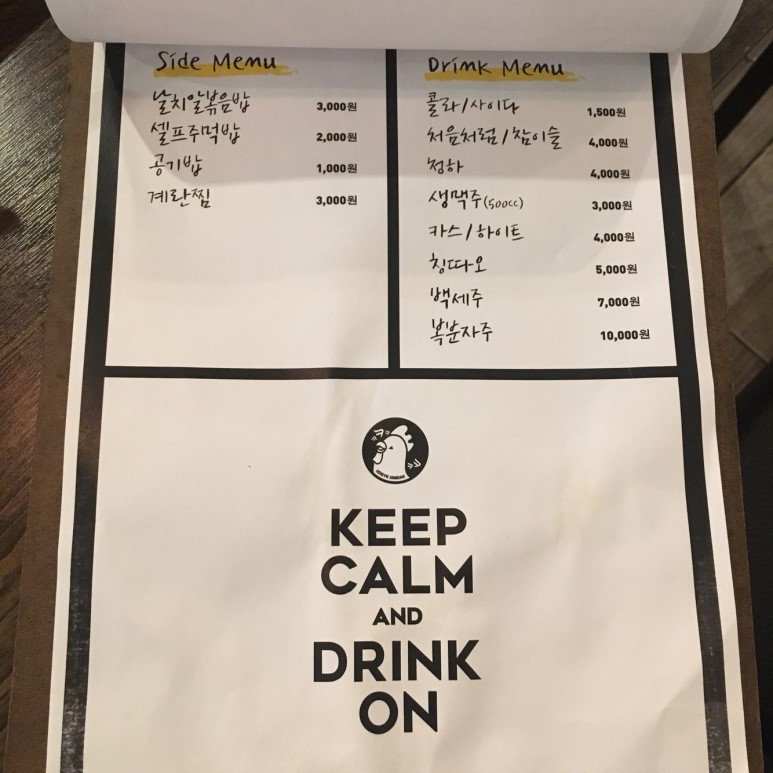 Side Menu
날치알볶음밥 3,000원
셀프주먹밥 2,000원
공기밥 1,000원
계란찜 3,000원
Drink Menu
콜라/사이다 1,500원
처음처럼/참이슬 4,000원
청하 4,000원
생맥주(500cc) 3,000원
카스/하이트 4,000원
칭따오 5,000원
백세주 7,000원
복분자주 10,000원
KEEP
CALM
AND
DRINK
ON